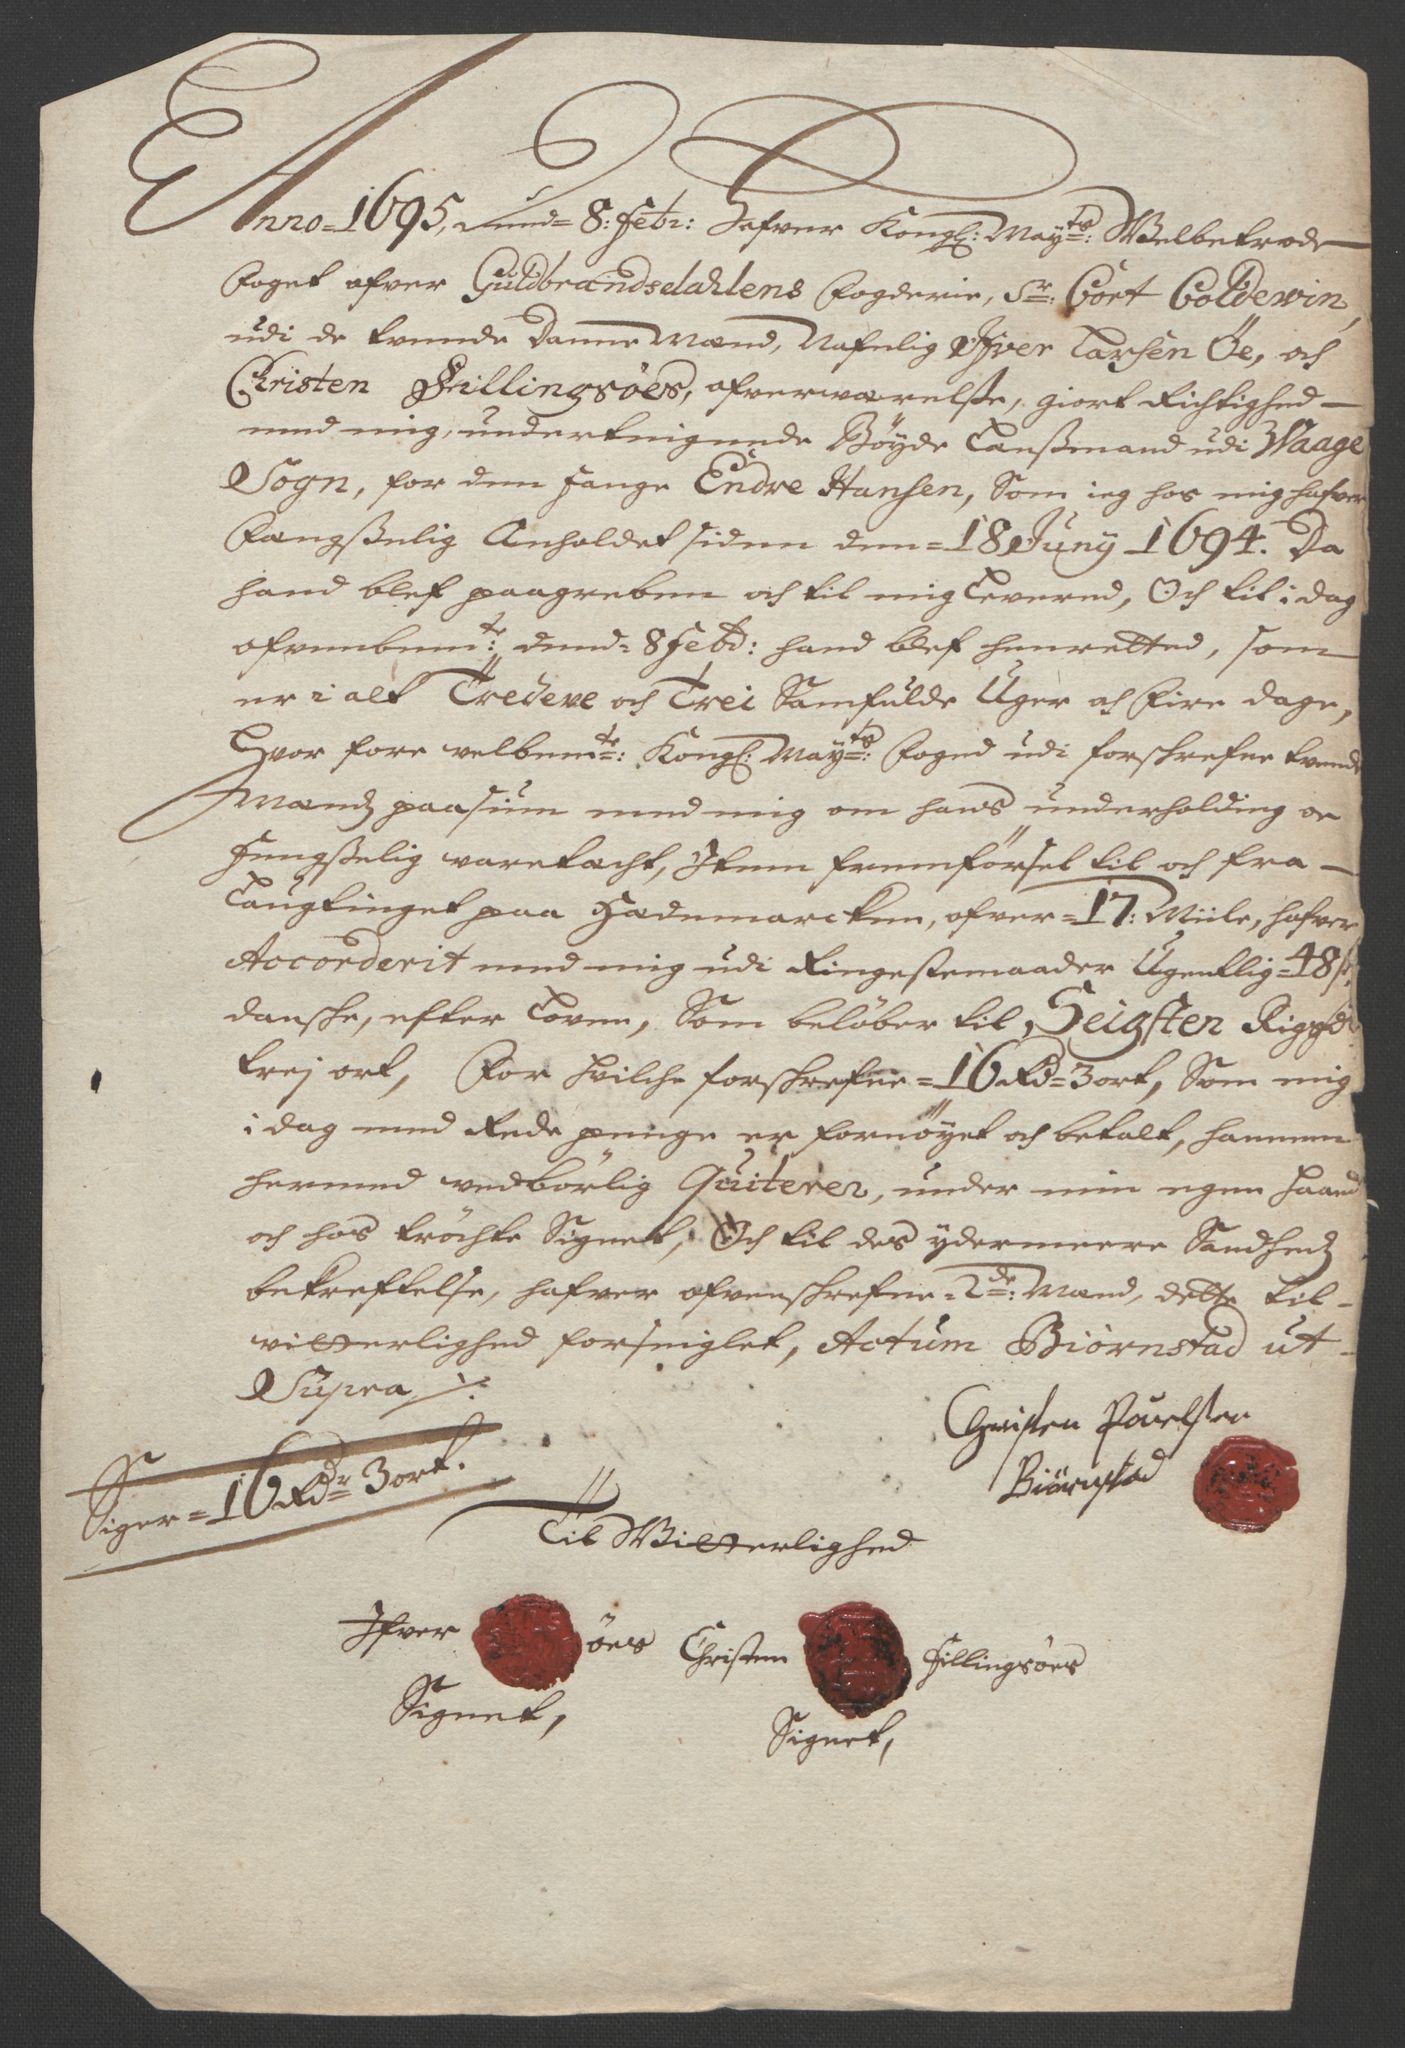 Anno= 1695, dend= 8: Febr: Hafver Kongl: Mayts: Welbetrode
Foget ofver Guldbrandsdahlens Fogderie, Sr: Cort Coldewin,
udi de tvende Danne Mænd, Nafnlig Ifver Larsen Öe, och
Christen Fillingsöes, ofverwærelsse, giort Richtighed
med mig, undertegnede Böyde Lenßmand udi Waage
Sogn, for den fange Endre Hansen, Som ieg hos mig hafver
Fængßelig Anholdet siden den= 18 Juny 1694. Da
hand blef paagreben och til mig Levered, Och til i dag
ofvenbemte: dend= 8 Febr: hand blef henretted, som
er i alt Tredeve och Trei Samfulde Uger och Fire dage,
Hvor fore velbemte: Kongl: Mayts: Foged udi forschrefne tvende
Mænds paasiun med mig om hans underholding oc
fengßelig waretæcht, Item fremförsel til och fra
Laugtinget paa Hedemarcken, ofver= 17: Miile, hafver
Accorderit med mig udi Ringestemaader Ugentlig= 48 s
dansche, efter Loven, Som belöber til Seigsten Rigsdr
trej ort, For hvilche forschrefne= 16 Rd= 3 ort, Som mig
i dag med Rede penge er fornöyet och betalt, hannem
hermed vedbörlig Quiterer, under min egen haand
och hos tröchte Signet, Och til des ydermeere Sandheds
bekreftelse, hafver ofvenschrefne= 2de: Mænd, dette til
vitterlighed forseiglet, Actum Biörnstad ut
Supra ./.
Christen Pouelsen
Biörnstad
Siger= 16 Rdr 3 ort.
Til Witterlighed
Ifver öes Christen Fillingsöes
Signet, Signet,